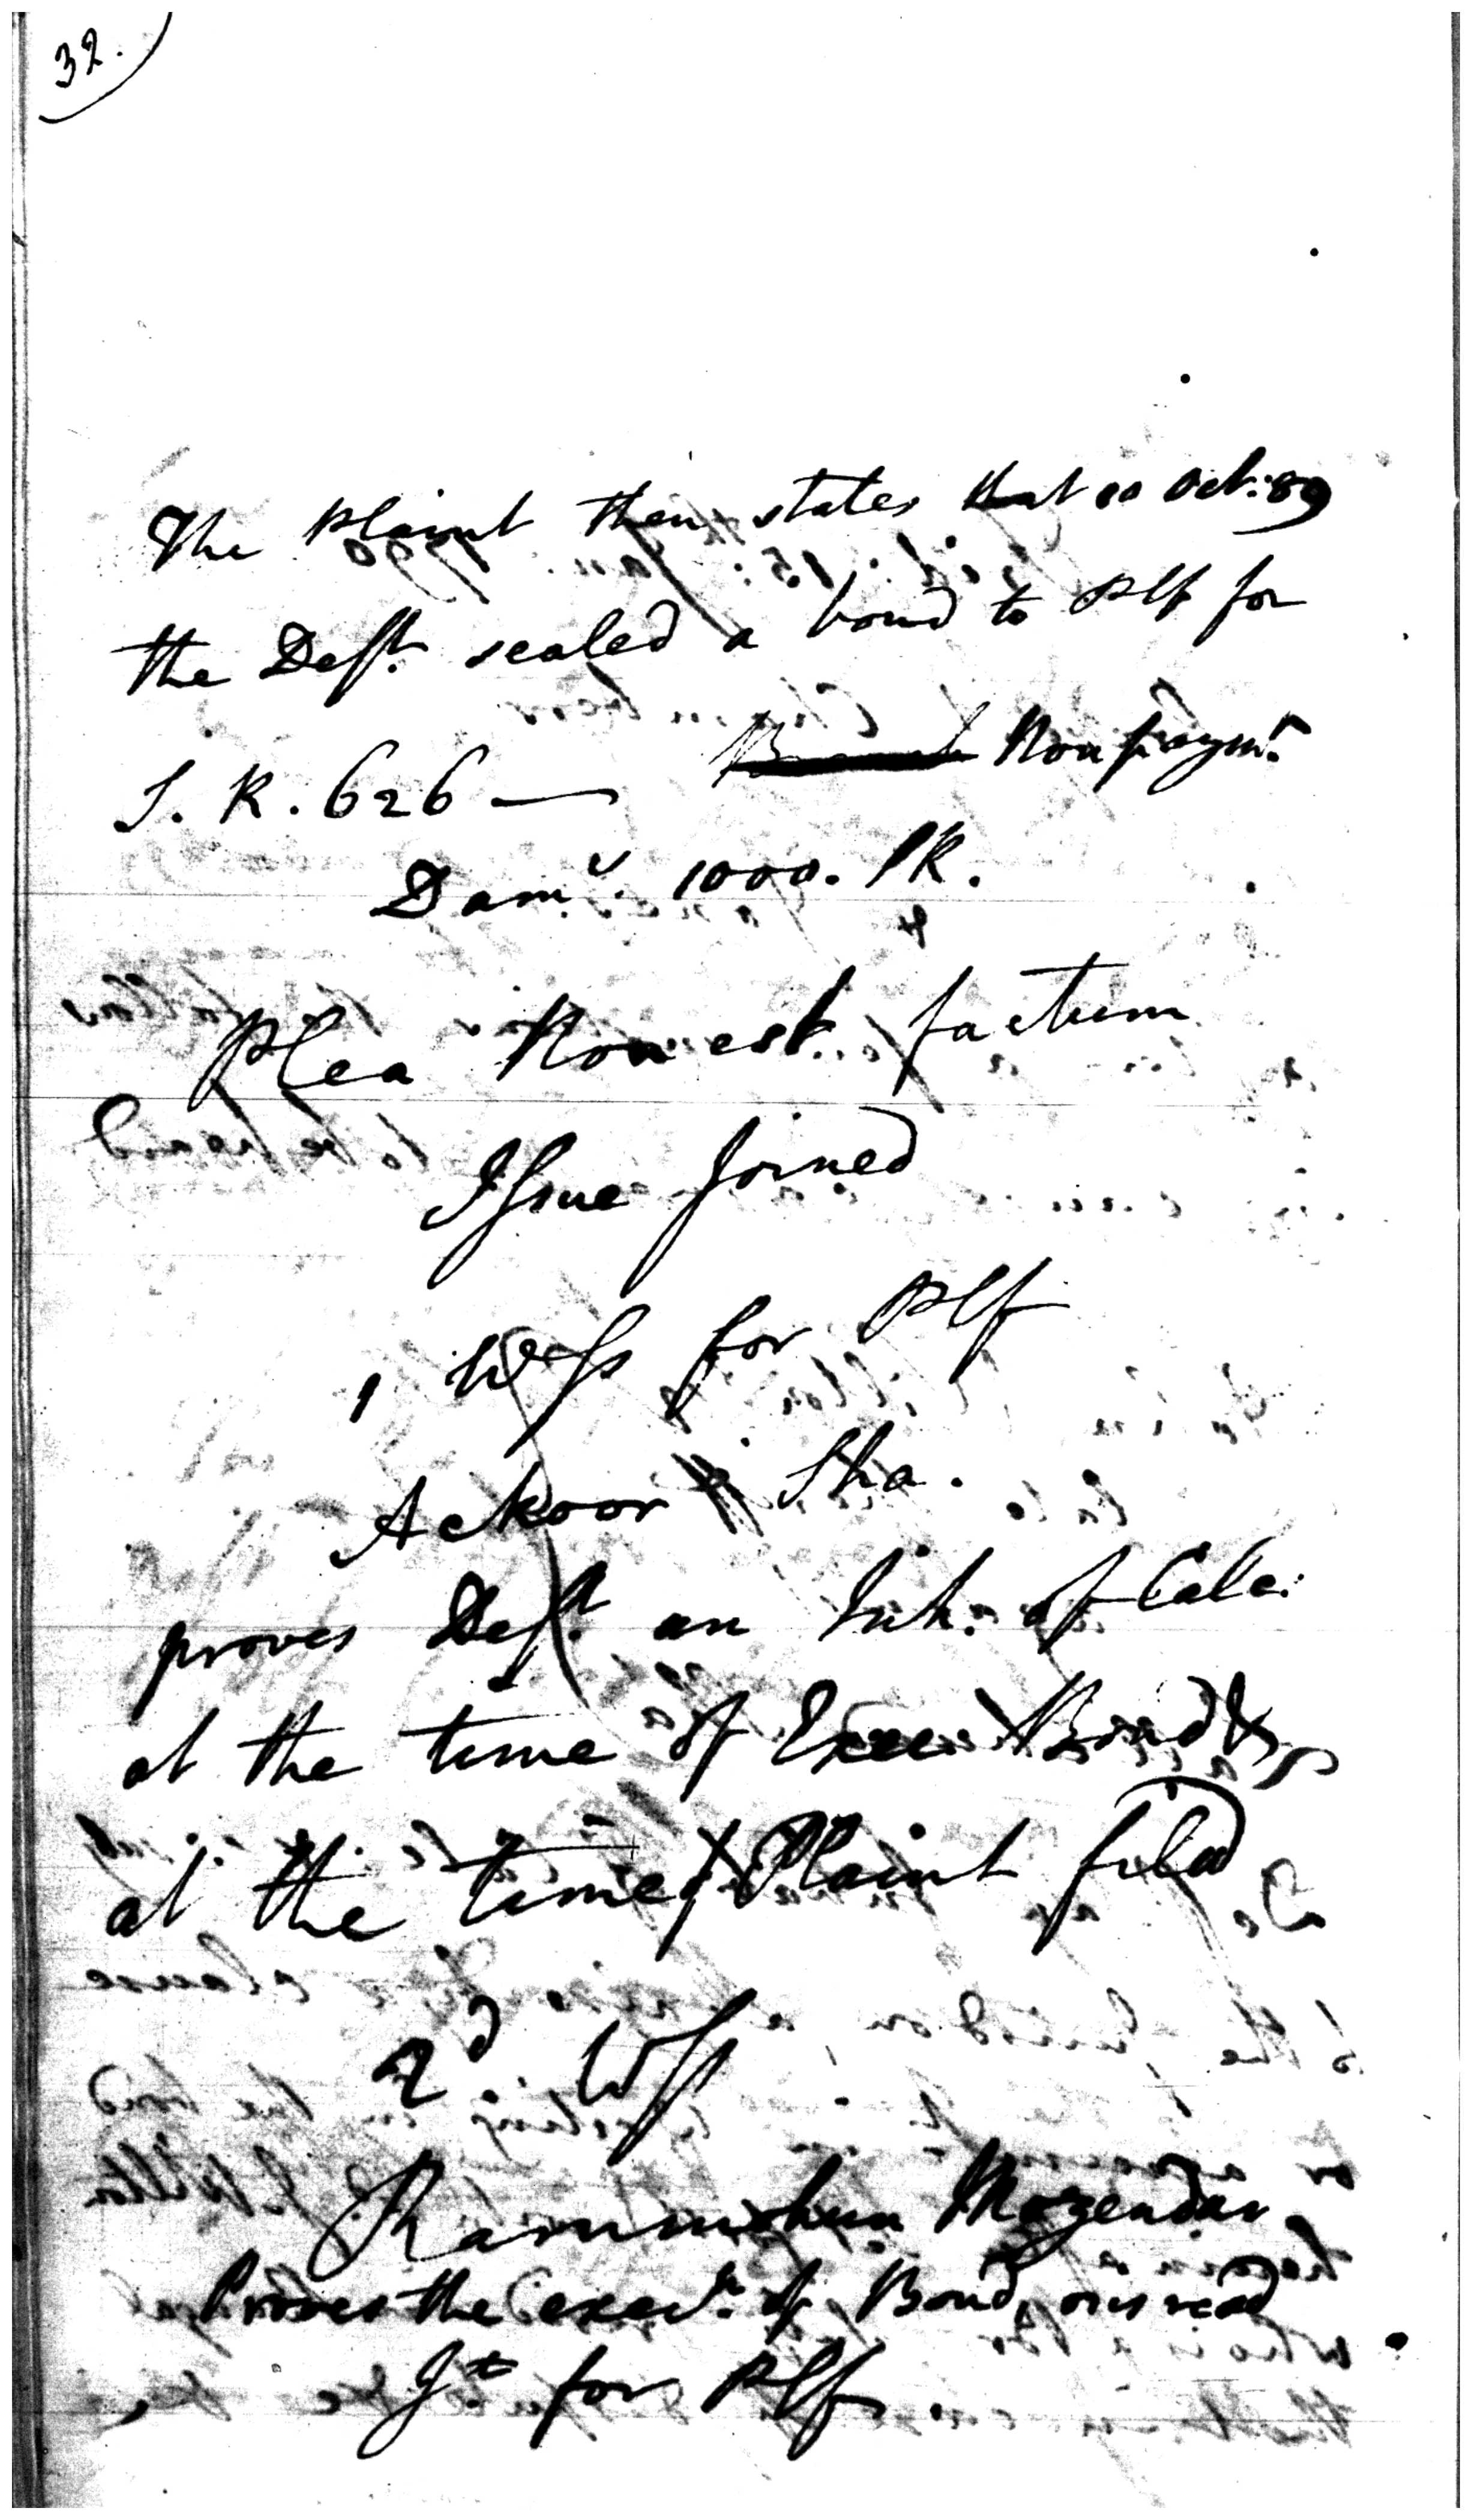 32.
The Plaint then states that 10 Oct: 89
the Deft. sealed a bond to Plf for
S. R. 626 — Non paymt.
Dams. 1000. SR.
Plea Non est factum
Issue joined
1 Wss for Plf
Ackoor Sha.
proves Deft. an Inh. of Calc:
at the time of Exec. Bond &
at the time of Plaint filed
2d. Wss
Rammohun Mozendar
Proves the execn. of Bond, ors read
Jt for Plf